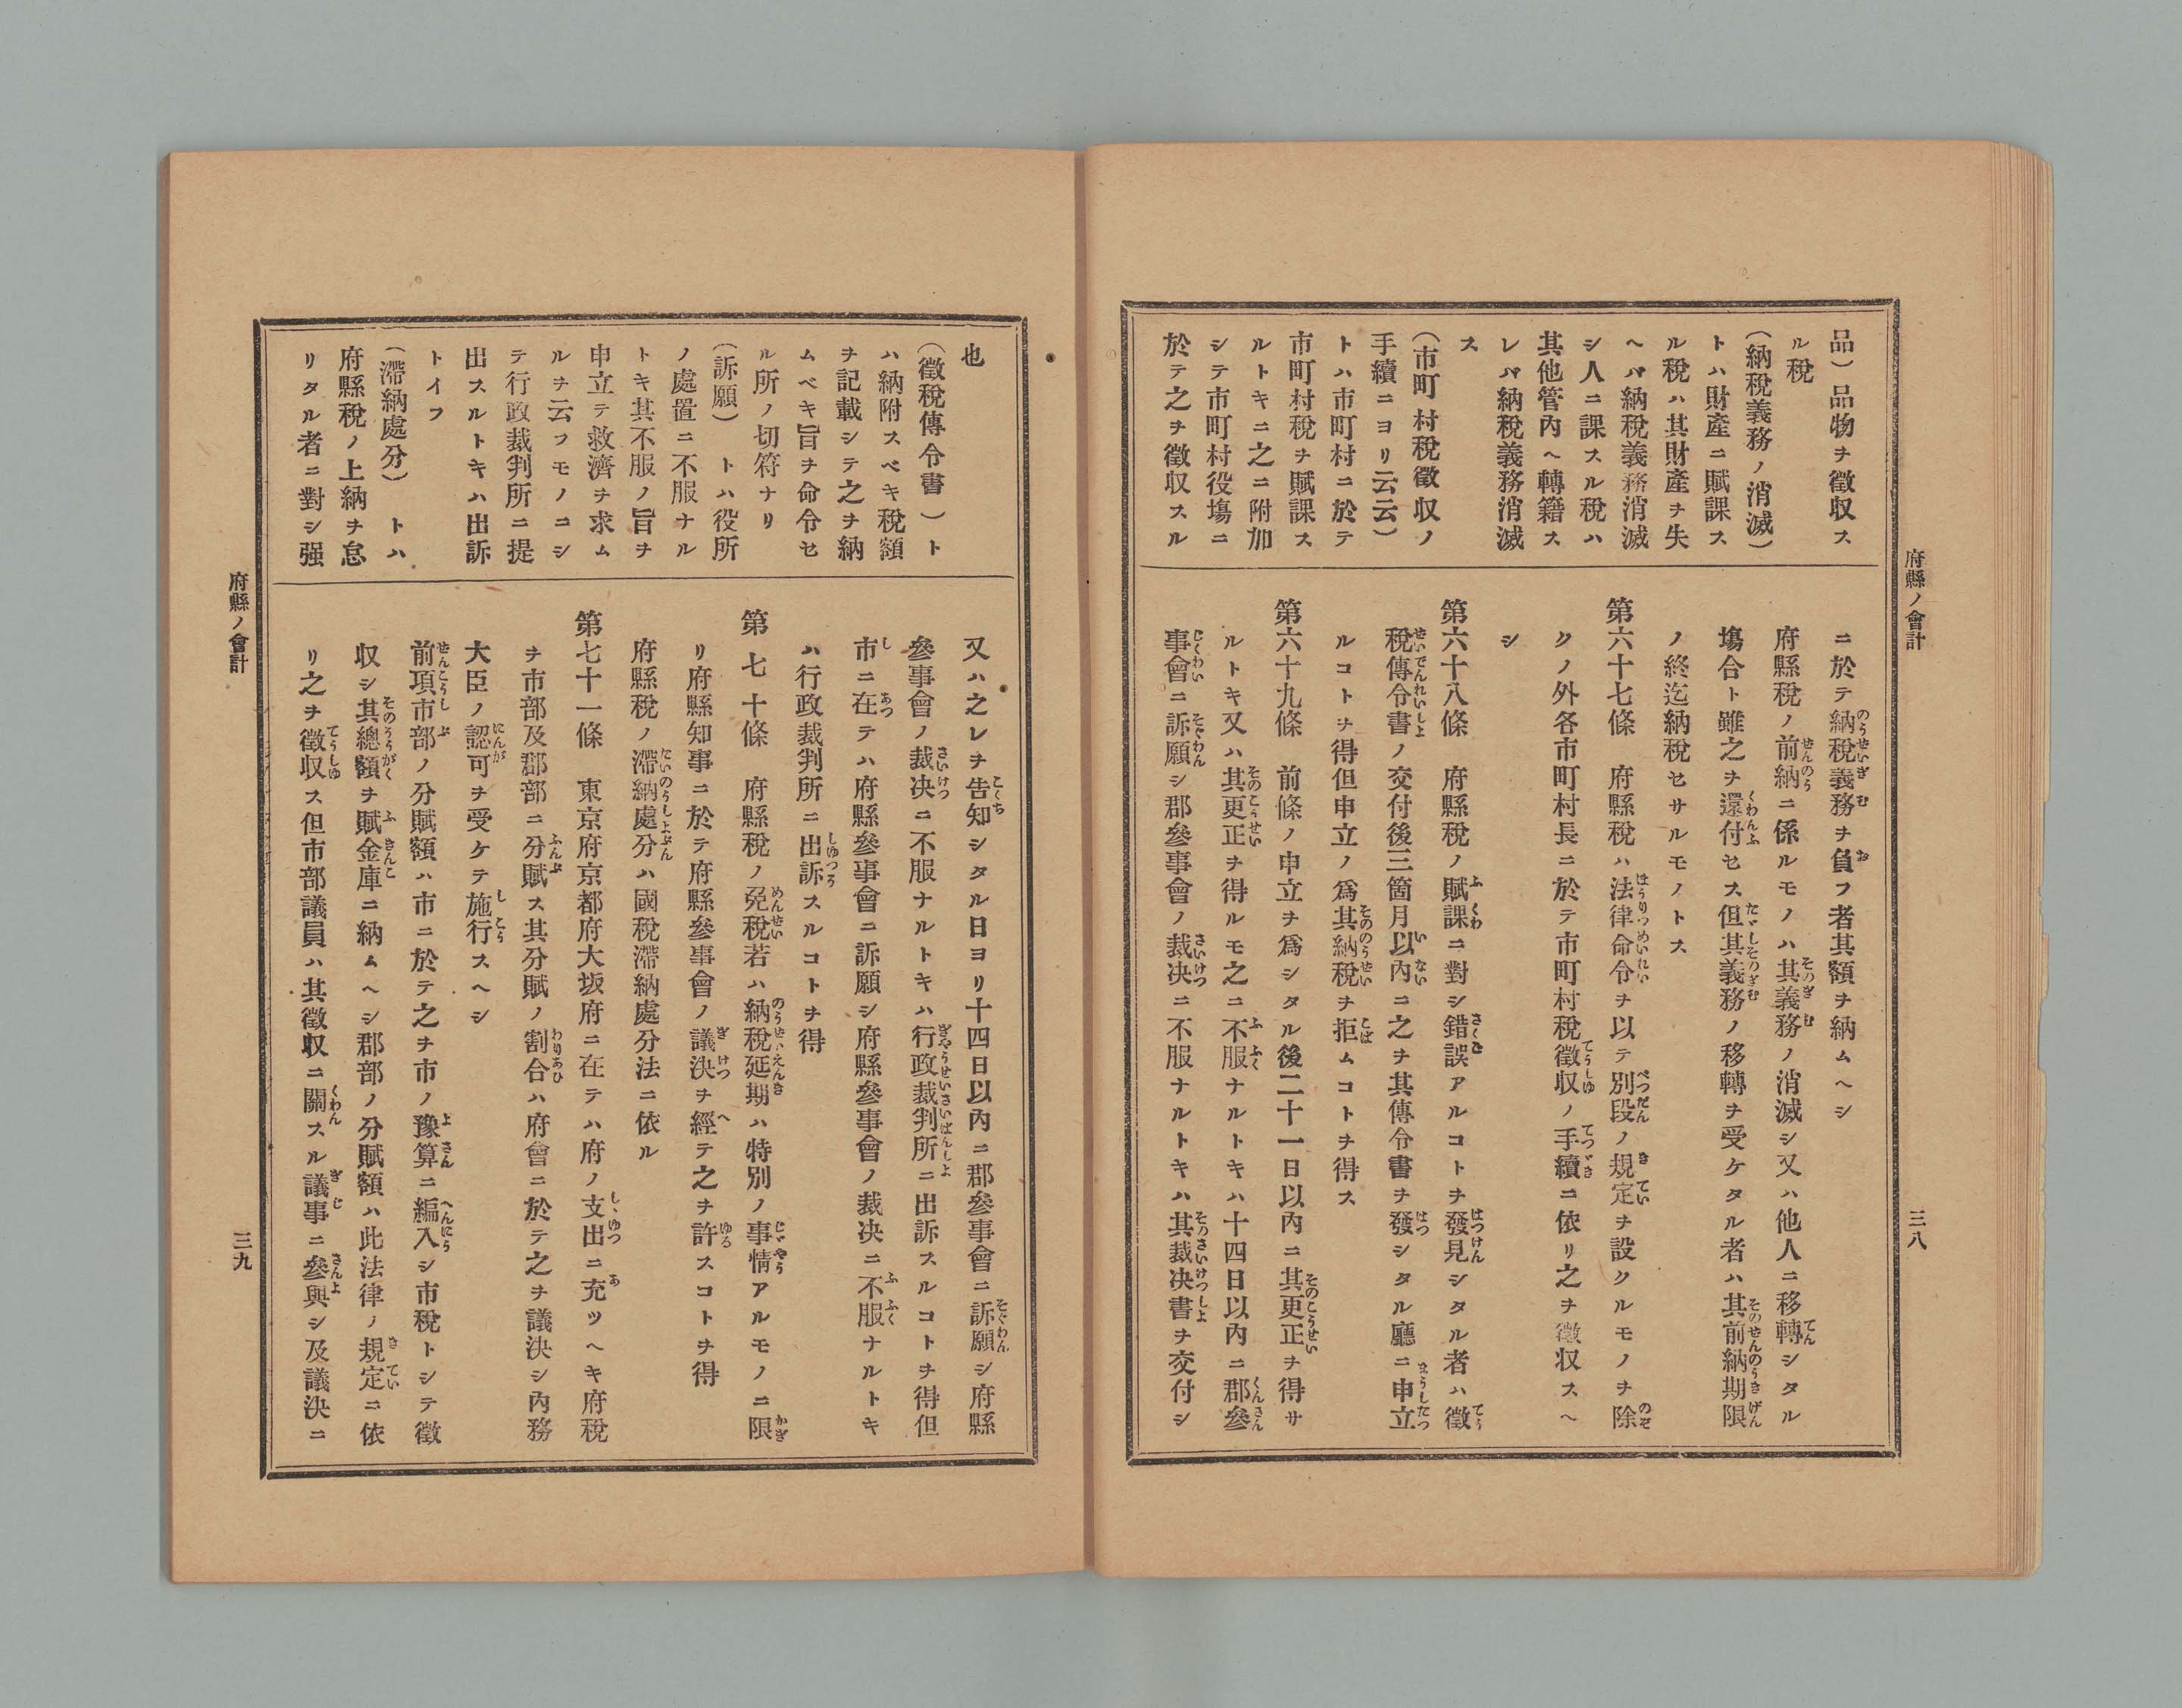 府縣ノ會計
三八
品）品物ヲ徵収ス
ル稅
（納稅義務ノ消滅）
トハ財產ニ賦課ス
ル稅ハ其財產ヲ失
ヘバ納稅義務消滅
シ人ニ課スル稅ハ
其他管內ヘ轉籍ス
レバ納稅義務消滅
ス
（市町村稅徵収ノ
手續ニヨリ云云）
トハ市町村ニ於テ
市町村稅ヲ賦課ス
ルトキニ之ニ附加
シテ市町村役塲ニ
於テ之ヲ徵収スル
ニ於テ納稅義務ヲ負フ者其額ヲ納ムヘシ
府縣稅ノ前納ニ係ルモノハ其義務ノ消滅シ又ハ他人ニ移轉シタル
塲合ト雖之ヲ還付セス但其義務ノ移轉ヲ受ケタル者ハ其前納期限
ノ終迄納稅セサルモノトス
第六十七條　府縣稅ハ法律命令ヲ以テ別段ノ規定ヲ設クルモノヲ除
クノ外各市町村長ニ於テ市町村稅徵収ノ手續ニ依リ之ヲ徵収スヘ
シ
第六十八條　府縣稅ノ賦課ニ對シ錯誤アルコトヲ發見シタル者ハ徵
稅傳令書ノ交付後三箇月以內ニ之ヲ其傳令書ヲ發シタル廳ニ申立
ルコトヲ得但申立ノ爲其納稅ヲ拒ムコトヲ得ス
第六十九條　前條ノ申立ヲ爲シタル後二十一日以內ニ其更正ヲ得サ
ルトキ又ハ其更正ヲ得ルモ之ニ不服ナルトキハ十四日以內ニ郡參
事會ニ訴願シ郡參事會ノ裁决ニ不服ナルトキハ其裁决書ヲ交付シ
也
（徵稅傳令書）ト
ハ納附スベキ稅額
ヲ記載シテ之ヲ納
ムベキ旨ヲ命令セ
ル所ノ切符ナリ
（訴願）トハ役所
ノ處置ニ不服ナル
トキ其不服ノ旨ヲ
申立テ救濟ヲ求ム
ルヲ云フモノニシ
テ行政裁判所ニ提
出スルトキハ出訴
トイフ
（滯納處分）トハ
府縣稅ノ上納ヲ怠
リタル者ニ對シ强
又ハ之レヲ告知シタル日ヨリ十四日以內ニ郡參事會ニ訴願シ府縣
參事會ノ裁决ニ不服ナルトキハ行政裁判所ニ出訴スルコトヲ得但
市ニ在テハ府縣參事會ニ訴願シ府縣參事會ノ裁决ニ不服ナルトキ
ハ行政裁判所ニ出訴スルコトヲ得
第七十條　府縣稅ノ免稅若ハ納稅延期ハ特別ノ事情アルモノニ限
リ府縣知事ニ於テ府縣參事會ノ議决ヲ經テ之ヲ許スコトヲ得
府縣稅ノ滯納處分ハ國稅滯納處分法ニ依ル
第七十一條　東京府京都府大坂府ニ在テハ府ノ支出ニ充ツヘキ府稅
ヲ市部及郡部ニ分賦ス其分賦ノ割合ハ府會ニ於テ之ヲ議决シ內務
大臣ノ認可ヲ受ケテ施行スヘシ
前項市部ノ分賦額ハ市ニ於テ之ヲ市ノ豫算ニ編入シ市稅トシテ徵
収シ其總額ヲ賦金庫ニ納ムヘシ郡部ノ分賦額ハ此法律ノ規定ニ依
リ之ヲ徵収ス但市部議員ハ其徵収ニ關スル議事ニ參與シ及議决ニ
府縣ノ會計
三九